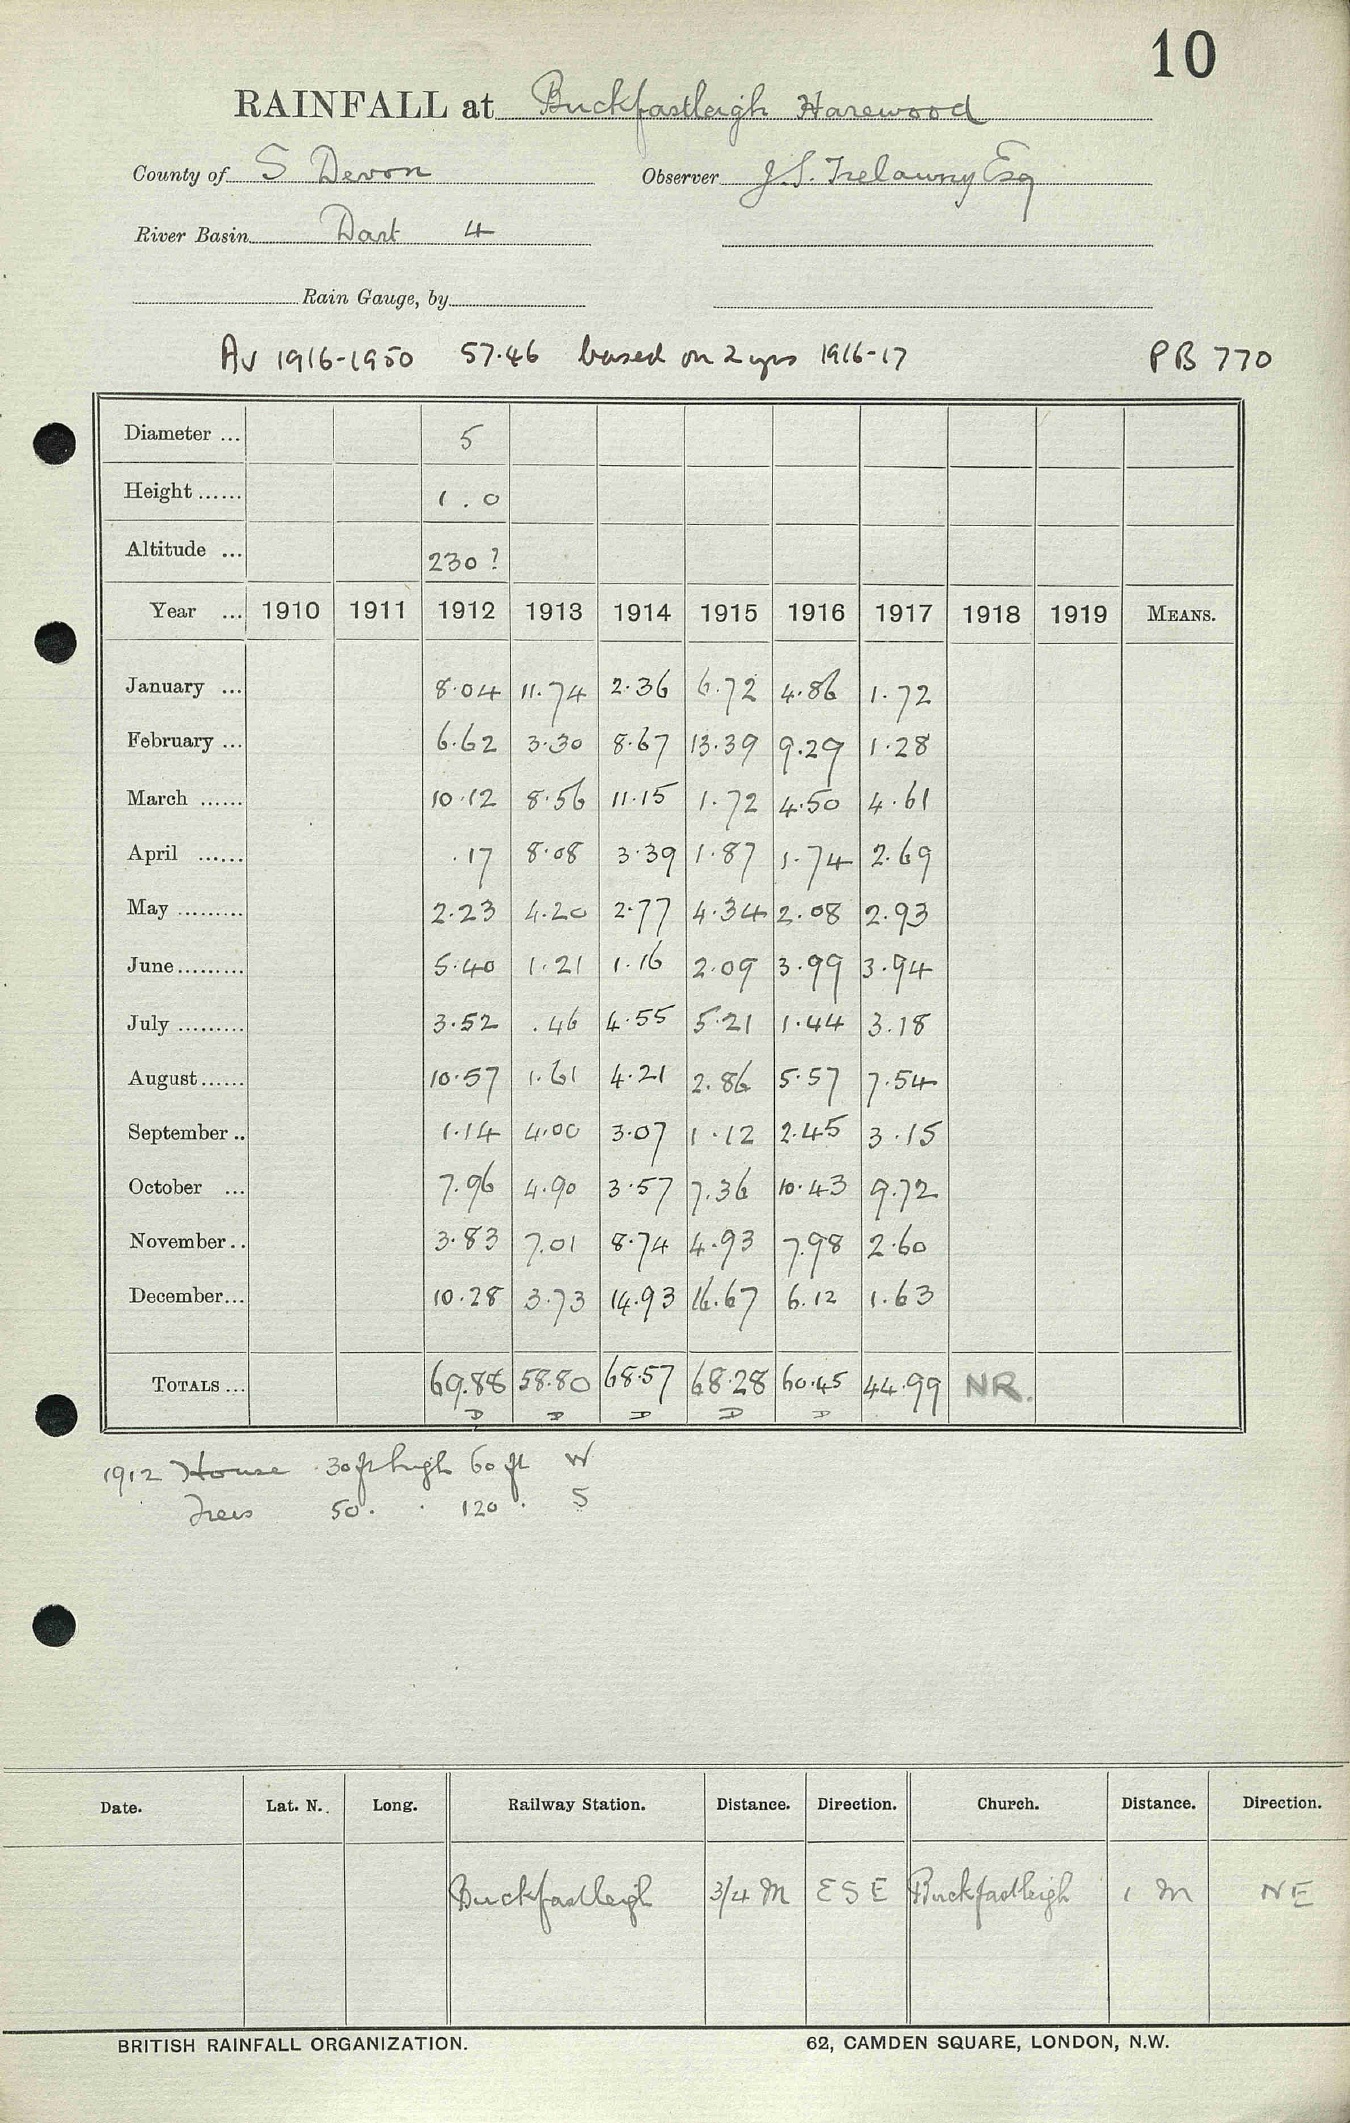 10
RAINFALL at Buckfastleigh Harewood
County of S Devon Observer J.S. Trelawny Esq
River Basin Dart 4
Rain Gauge, by
Av 1916-1950 57.46 based on 2 yrs 1916-17 PB 770
Diameter ... 5
Height ...... 1.0
Altitude ... 230 ?
Year ... 1910 1911 1912 1913 1914 1915 1916 1917 1918 1919 MEANS.
January ... 8.04 11.74 2.36 6.72 4.86 1.72
February ... 6.62 3.30 8.67 13.39 9.29 1.28
March ...... 10.12 8.56 11.15 1.72 4.50 4.61
April ...... .17 8.08 3.39 1.87 1.74 2.69
May ......... 2.23 4.20 2.77 4.34 2.08 2.93
June ......... 5.40 1.21 1.16 2.09 3.99 3.94
July ......... 3.52 .46 4.55 5.21 1.44 3.18
August ...... 10.57 1.61 4.21 2.86 5.57 7.54
September .. 1.14 4.00 3.07 1.12 2.45 3.15
October ... 7.96 4.90 3.57 7.36 10.43 9.72
November .. 3.83 7.01 8.74 4.93 7.98 2.60
December ... 10.28 3.73 14.93 16.67 6.12 1.63
TOTALS ... 69.88 58.80 68.57 68.28 60.45 44.99 NR.
D D D D D
1912 House 30 ft high 60 ft W
Trees 50 . . 120 . S
Date. Lat. N. Long. Railway Station. Distance. Direction. Church. Distance. Direction.
Buckfastleigh 3/4 M ESE Buckfastleigh 1 M NE
BRITISH RAINFALL ORGANIZATION. 62, CAMDEN SQUARE, LONDON, N.W.